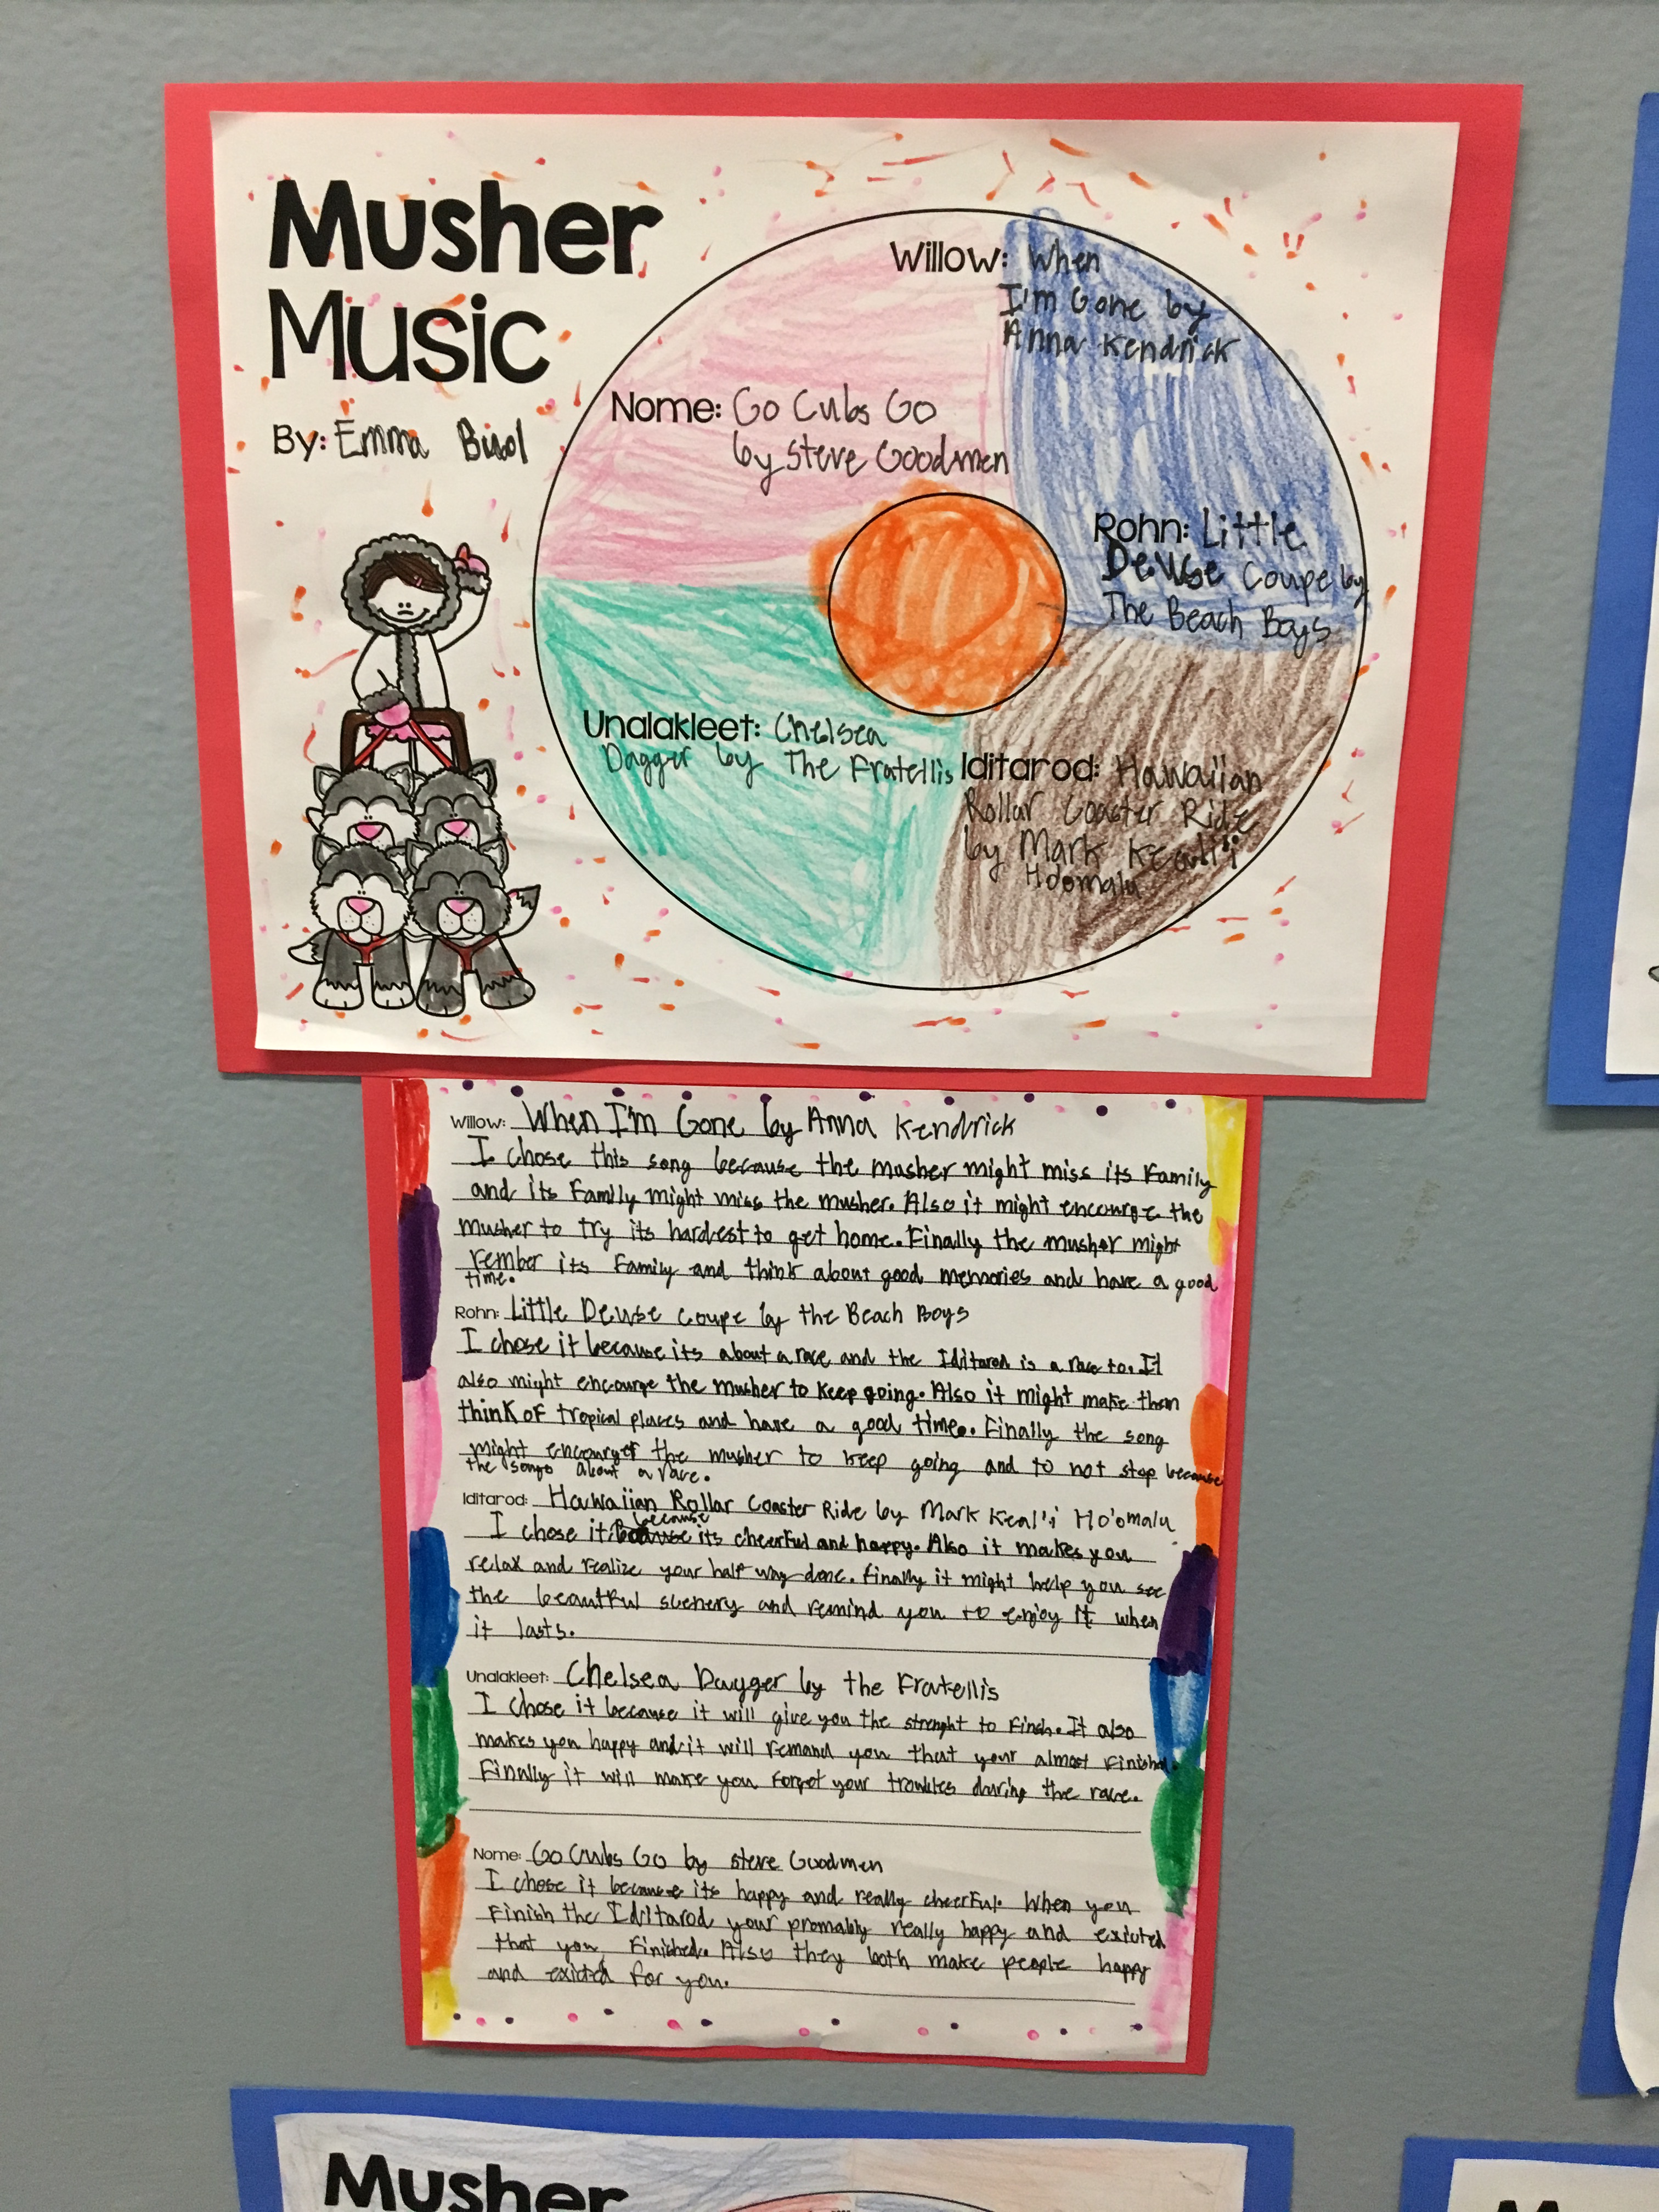 Musher
Music
By: Emma
Willow: When
I'm Gone by
Anna Kendrick
Nome: Go Cubs Go
by Steve Goodmen
Rohn: Little
Deuse Coupe by
The Beach Boys
Unalakleet: Chelsea
Dagger by The Fratellis
Iditarod: Hawaiian
Rollar Coaster Ride
by Mark Keali'i
Ho'omalu
Willow: When I'm Gone by Anna Kendrick
I chose this song because the musher might miss its Family
and its Family might miss the musher. Also it might encourge the
musher to try its hardest to get home. Finally the musher might
rember its Family and think about good memories and have a good
time.
Rohn: Little Deuse Coupe by the Beach Boys
I chose it because its about a race and the Iditarod is a race to. It
also might encourge the musher to keep going. Also it might make them
think of tropical places and have a good time. Finally the song
might the musher to keep going and to not stop because
the songs about a race.
Iditarod: Hawaiian Rollar Coaster Ride by Mark Keal'i Ho'omalu
I chose it because its cheerful and happy. Also it makes you
relax and realize your half way done. Finally it might help you see
the beautful scenery and remind you to enjoy it when
it lasts.
Unalakleet: Chelsea Dagger by the Fratellis
I chose it because it will give you the strenght to Finsh. It also
makes you happy and it will remand you that your almost Finished.
Finally it will make you Forget your troubles during the race.
Nome: Go Cubs Go by Steve Goodmen
I chose it because its happy and really cheerful. When you
Finish the Iditarod your promably really happy and exicted
that you Finished. Also they both make people happy
and exicted for you.
Musher